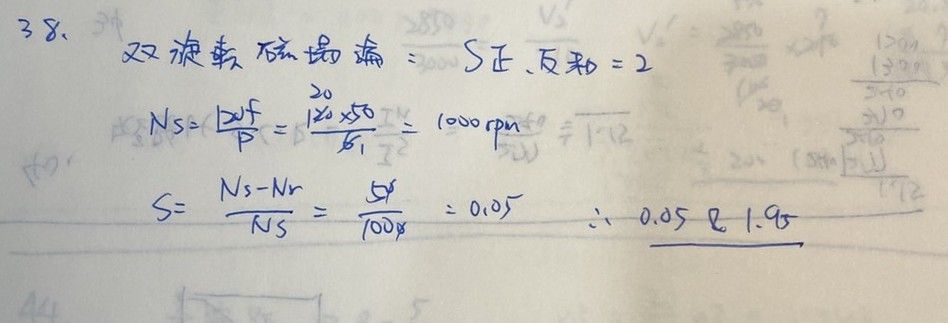 38.
双旋転磁場論 = S正、反和 = 2
Ns = 120f/P = 120×50/6 = 1000 rpm
S = Ns-Nr/Ns = 50/1000 = 0.05 ∴ 0.05 & 1.95